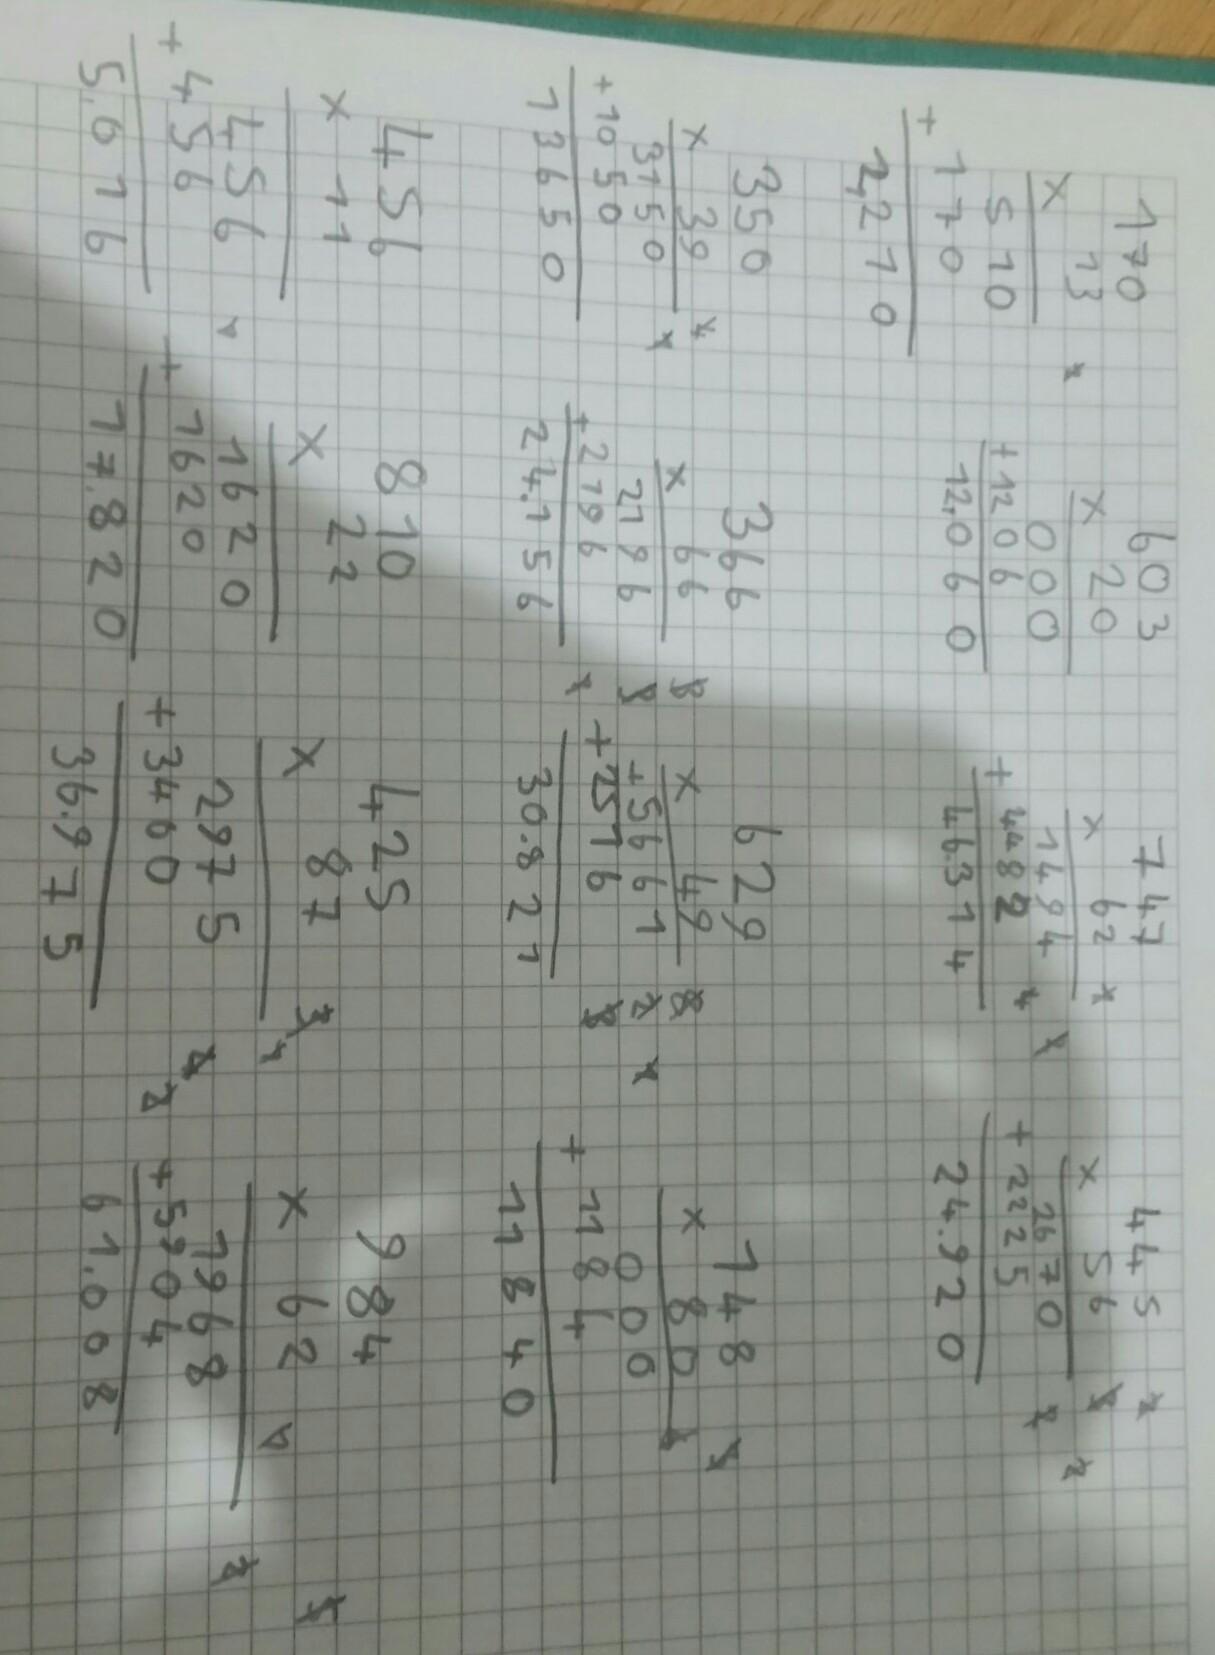 170
x 13
510
+ 170
2,210
603
x 20
000
+ 1206
12.060
747
x 62
1494
+ 4482
46.314
445
x 56
2670
+ 2225
24.920
350
x 39
3150
+ 1050
13650
366
x 66
2196
+ 2196
24.156
629
x 49
+ 5661
+ 2516
30.821
148
x 80
000
+ 1184
11840
456
x 11
456
+ 456
5.016
810
x 22
1620
+ 1620
17.820
425
x 87
2975
+ 3400
36.975
984
x 62
1968
+ 5904
61.008